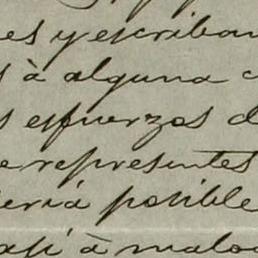 es y escriban
s à alguna
s esfuerzos d
e representes
eria posible
asi à malo